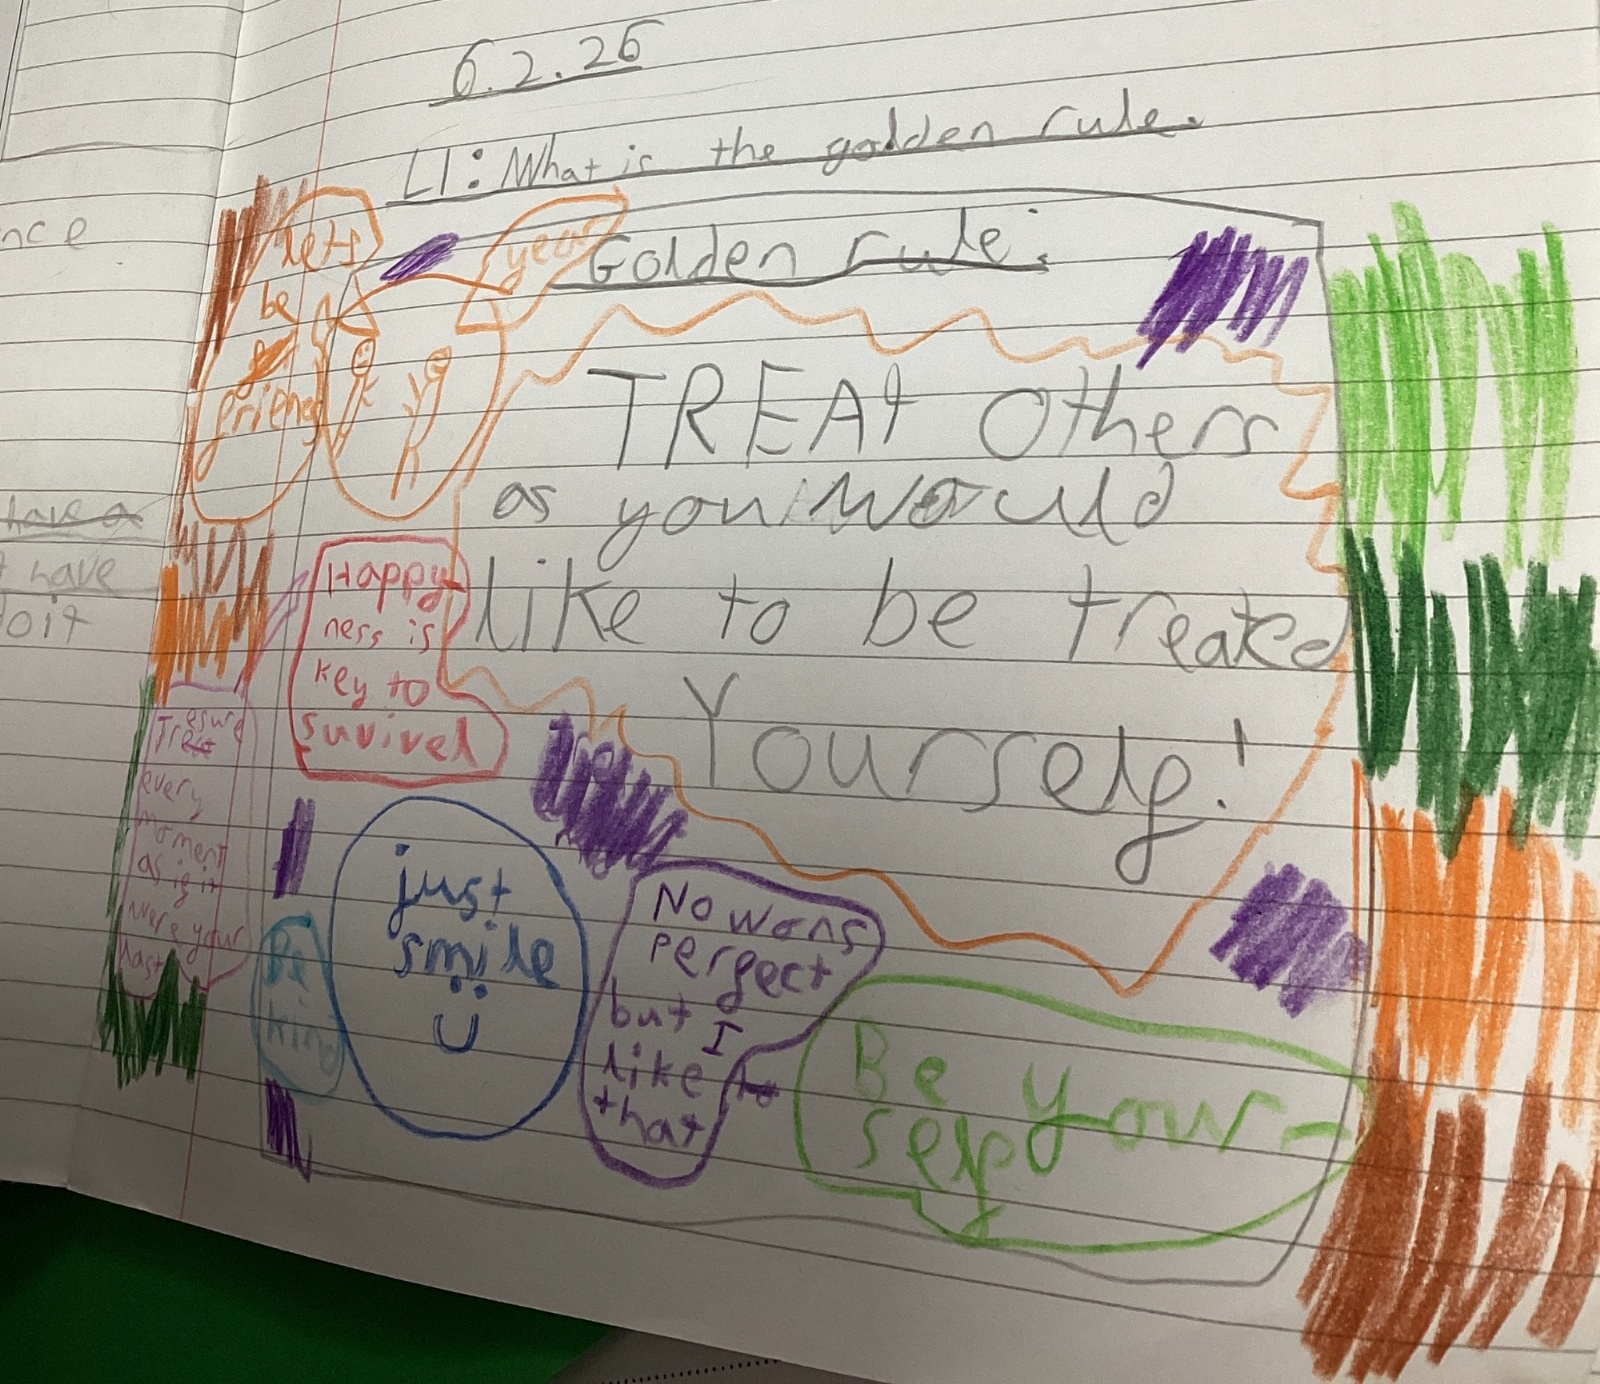 6.2.26
LI: What is the golden rule.
Golden rule:
TREAt Others
as you Would
like to be treated
Yourself!
lets
be
friends
year
Happy-
ness is
key to
suvivel
Treasure
every
moment
as if it
were your
last
just
smile
Be
kind
No wons
perfect
but I
like to
that
Be your-
self
nce
have a
have
doit